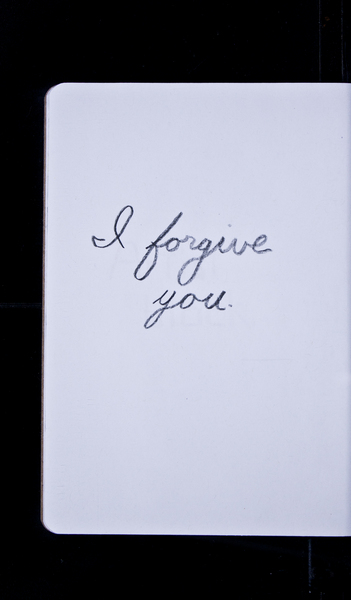 I forgive
you.